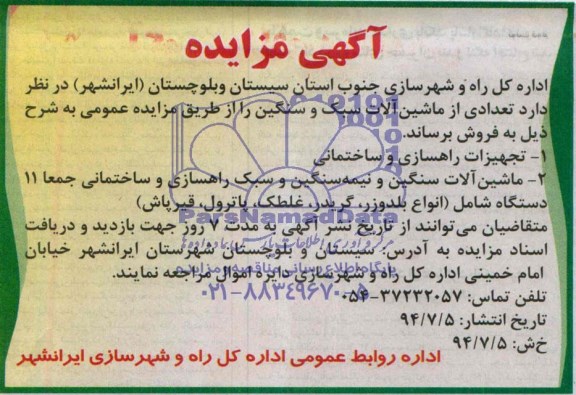 آگهی مزایده
اداره کل راه و شهرسازی جنوب استان سیستان وبلوچستان (ایرانشهر) در نظر
دارد تعدادی از ماشین آلات سبک و سنگین را از طریق مزایده عمومی به شرح
ذیل به فروش برساند.
۱- تجهیزات راهسازی و ساختمانی
۲- ماشین آلات سنگین و نیمه‌سنگین و سبک راهسازی و ساختمانی جمعا ۱۱
دستگاه شامل (انواع بلدوزر، گریدر، غلطک، پاترول، قیرپاش)
متقاضیان می‌توانند از تاریخ نشر آگهی به مدت ۷ روز جهت بازدید و دریافت
اسناد مزایده به آدرس: سیستان و بلوچستان شهرستان ایرانشهر خیابان
امام خمینی اداره کل راه و شهرسازی دایره اموال مراجعه نمایند.
تلفن تماس: ۳۷۲۳۲۰۵۷-۰۵۴
تاریخ انتشار: ۹۴/۷/۵
خ‌ش: ۹۴/۷/۵
اداره روابط عمومی اداره کل راه و شهرسازی ایرانشهر
ParsNamadData
پایگاه اطلاع رسانی مناقصه و مزایده
۰۲۱-۸۸۳۴۹۶۷۰-۵